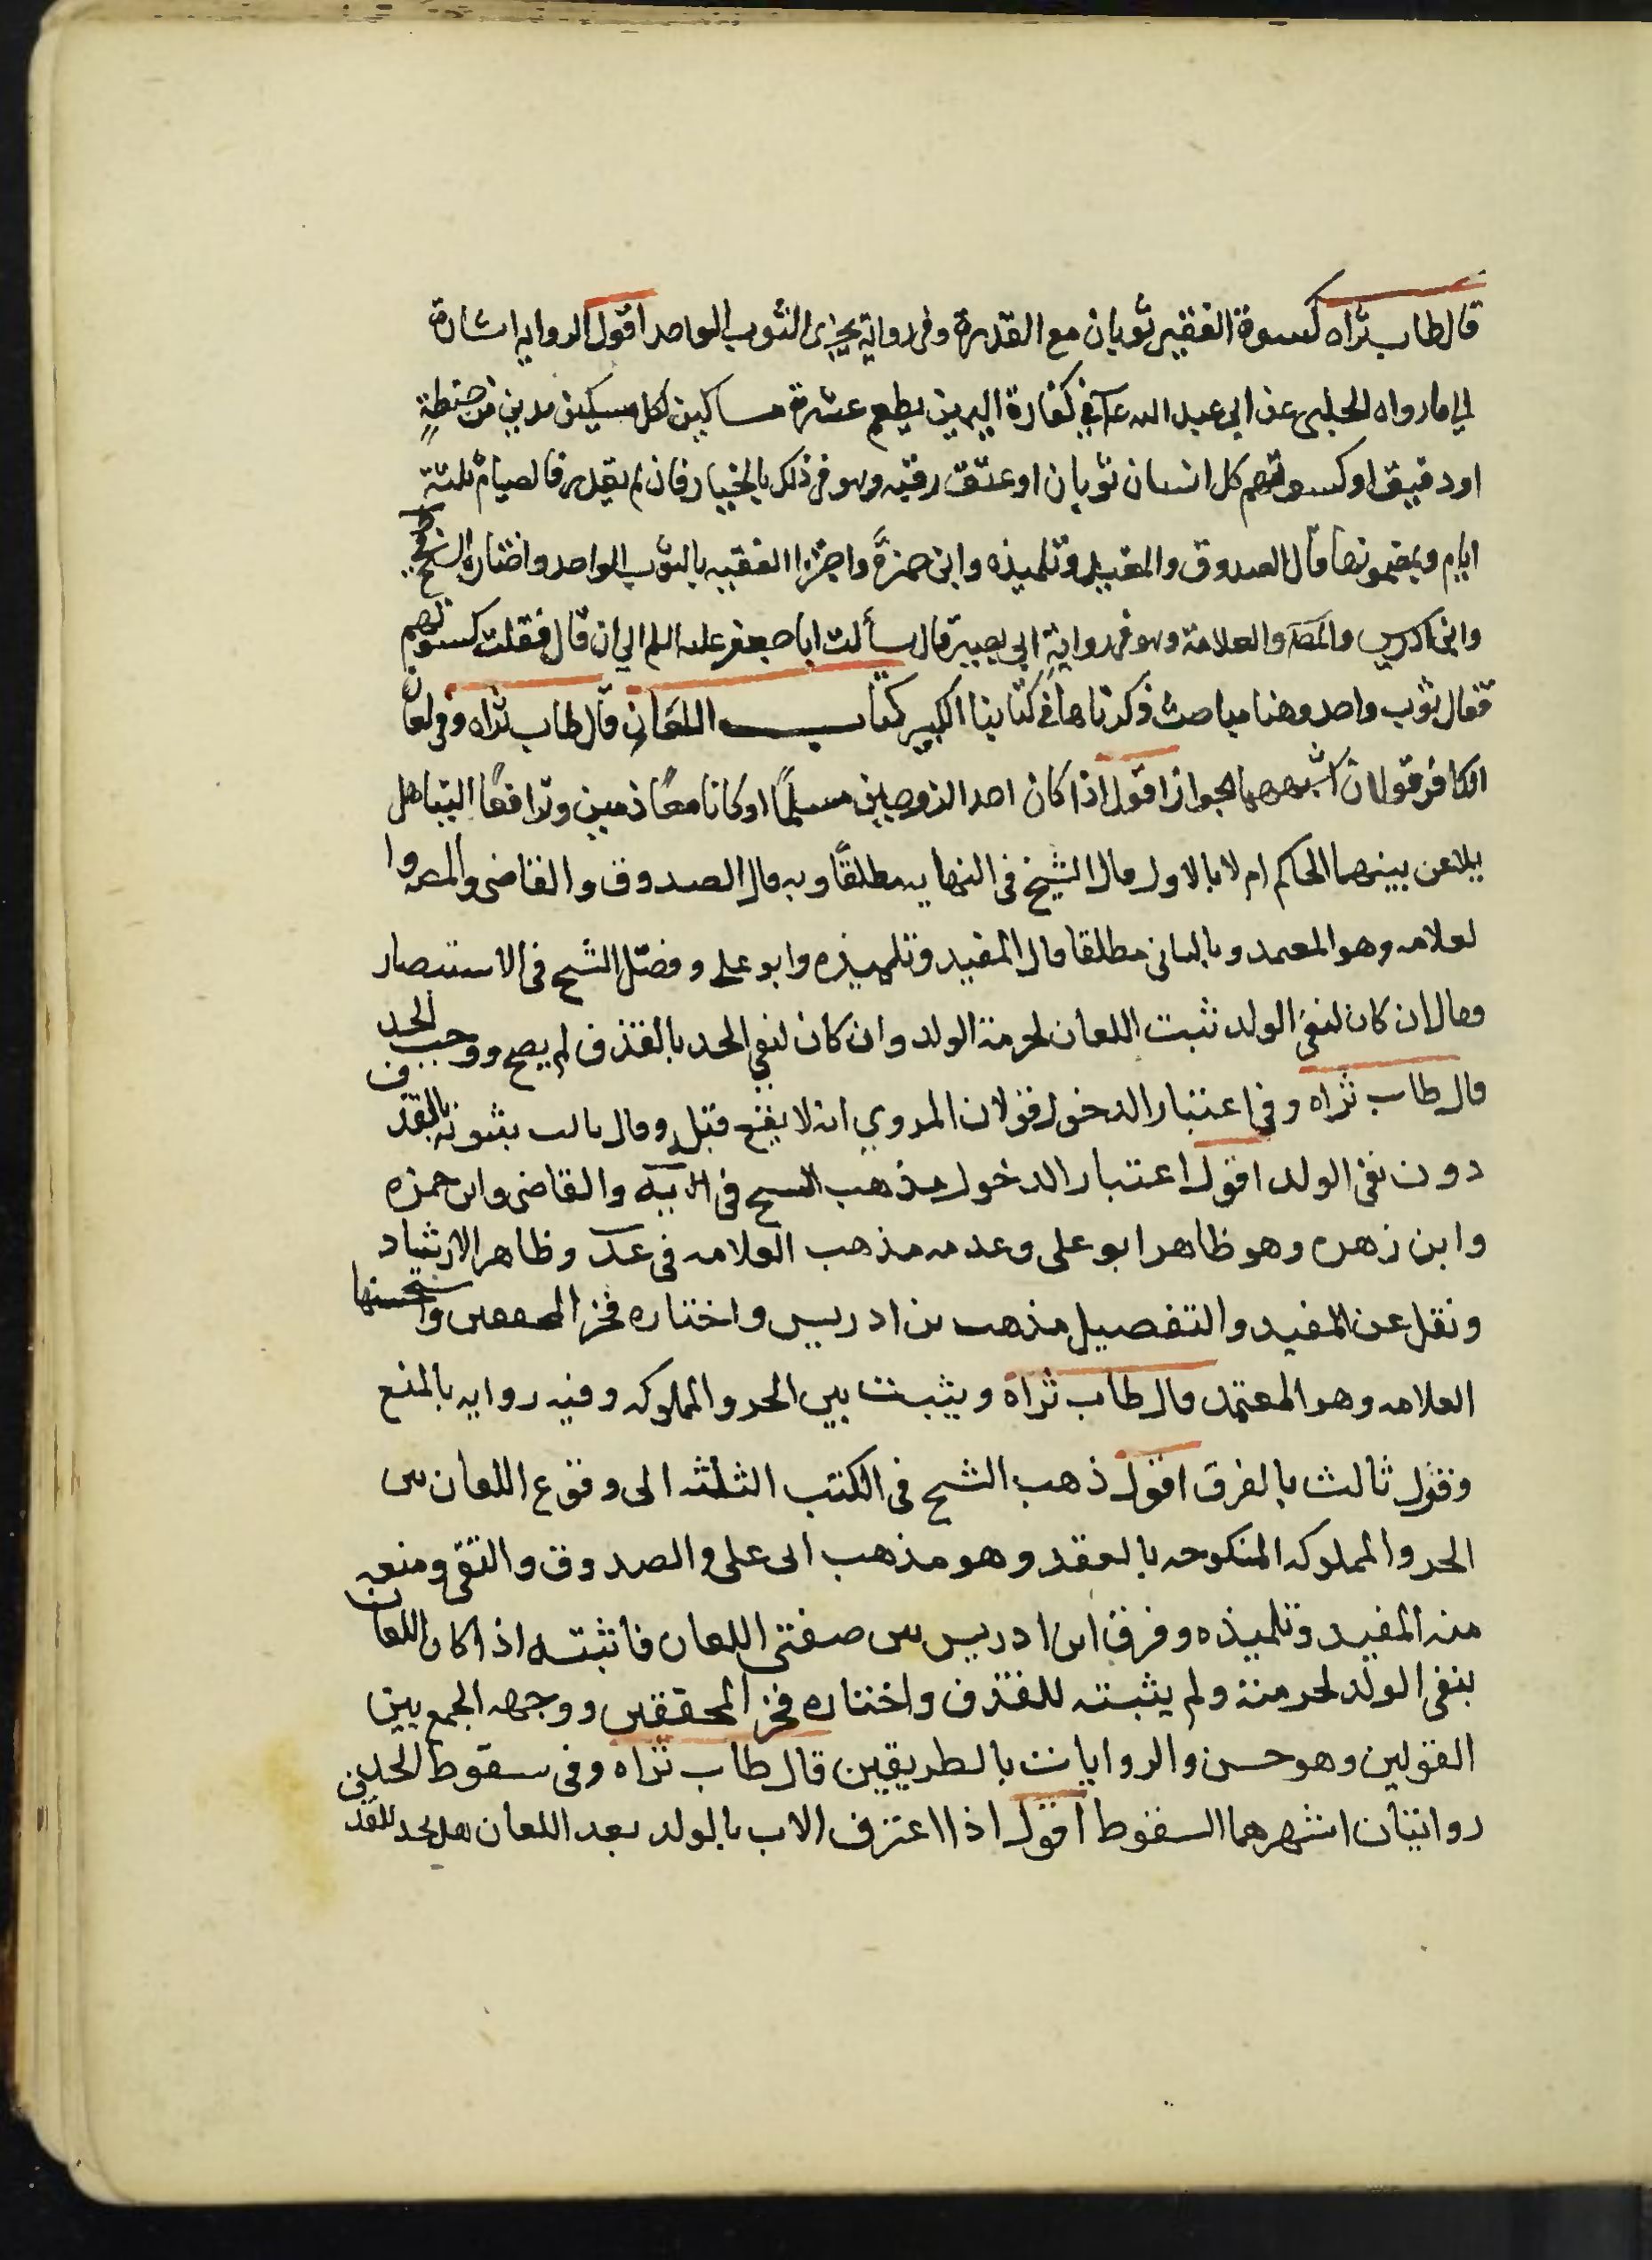 قال طاب ثراه كسوة الفقير ثوبان مع القدرة وفى رواية يجزى الثوب الواحد اقول الروايه اشارة
الى ما رواه الحلبى عن ابى عبد الله ع في كفارة اليمين يطعم عشرة مساكين لكل مسكين مدين من حنطةٍ
او دقيق او كسوتهم كل انسان ثوبان او عتق رقبه وهو فى ذلك بالخيار فان لم يقدر فالصيام ثلثة
ايام وبمضمونها قال الصدوق والمفيد وتلميذه وابن حمزة واجتزا الفقيه بالثوب الواحد واختاره الشيخ
وابن ادريس والمصه والعلامة وهو فى رواية ابى بصير قال سألت ابا جعفر عليه السلم الى ان قال فقلت كسوتهم
فقال ثوب واحد وهنا مباحث ذكرناها فى كتابنا الكبير كتاب اللعان قال طاب ثراه وفى لعان
الكافر قولان اشبههما الجواز اقول اذا كان احد الزوجين مسلمًا او كانا معًا ذميين وترافعا الينا هل
يلاعن بينهما الحاكم ام لا بالاول قال الشيخ فى النهايه مطلقًا وبه قال الصدوق والقاضى والمصه وا
لعلامه وهو المعتمد وبالثانى مطلقا قال المفيد وتلميذه وابو على وفصّل الشيخ فى الاستبصار
وقال ان كان لنفى الولد ثبت اللعان لحرمة الولد وان كان لنفى الحد بالقذف لم يصح ووجب الحد
قال طاب ثراه وفى اعتبار الدخول قولان المروي انه لا يقع قبل وقال ثالث بثبوته بالقذف
دون نفى الولد اقول اعتبار الدخول مذهب الشيخ فى النهاية والقاضى وابن حمزه
وابن زهره وهو ظاهر ابو على وعدمه مذهب العلامه فى عد وظاهر الارشاد
ونقل عن المفيد والتفصيل مذهب بن ادريس واختاره فخر المحققين واستحسنها
العلامه وهو المعتمد قال طاب ثراه ويثبت بين الحر والمملوكه وفيه روايه بالمنع
وقول ثالث بالفرق اقول ذهب الشيخ فى الكتب الثلثه الى وقوع اللعان بين
الحر والمملوكه المنكوحه بالعقد وهو مذهب ابى على والصدوق والتقى ومنعه
منه المفيد وتلميذه وفرق ابن ادريس بين صفتى اللعان فاثبته اذا كان اللعان
بنفى الولد لحرمته ولم يثبته للقذف واختاره فخر المحققين ووجهه الجمع بين
القولين وهو حسن والروايات بالطريقين قال طاب ثراه وفى سقوط الحد
روايتان اشهرهما السقوط اقول اذا اعترف الاب بالولد بعد اللعان هل يحد للقذف